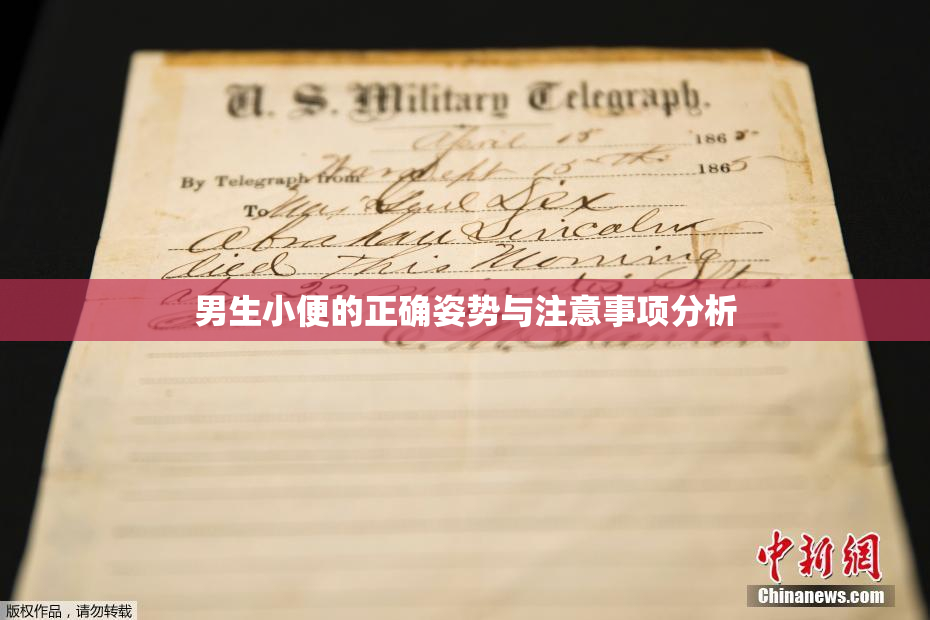 U. S. Military Telegraph.
April 15 1865
By Telegraph from War Dept 15th 1865
To Maj Genl Dix
Abraham Lincoln
died This Morning
at 22 minutes after
男生小便的正确姿势与注意事项分析
E. M. Stanton
中新网
Chinanews.com
版权作品,请勿转载